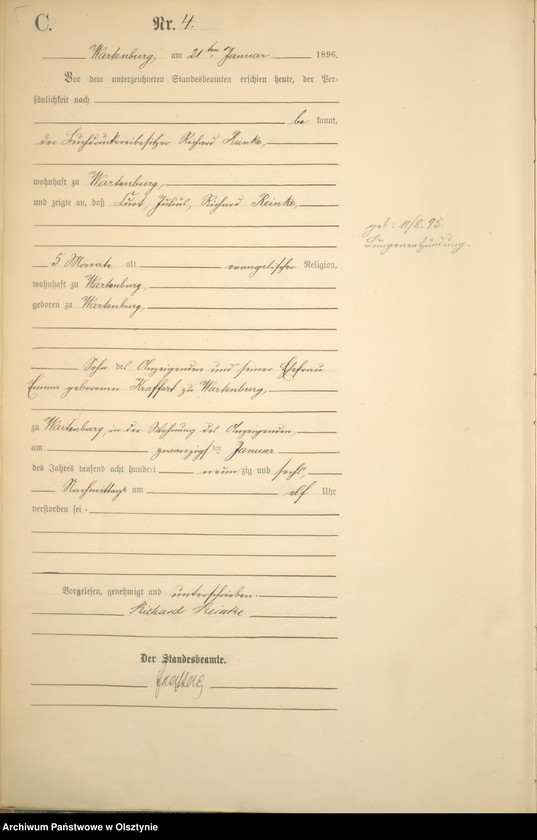 C. Nr. 4.
Wartenburg, am 21ten Januar 1896.
Vor dem unterzeichneten Standesbeamten erschien heute, der Per-
sönlichkeit nach
be kannt,
der Buchdruckereibesitzer Richard Reinke,
wohnhaft zu Wartenburg,
und zeigte an, daß Curt, Julius, Richard Reinke,
geb: 11/8. 95
Lungenentzündung.
5 Monate alt evangelischer Religion,
wohnhaft zu Wartenburg,
geboren zu Wartenburg,
Sohn des Anzeigenden und seiner Ehefrau
Emma geborenen Kraffert zu Wartenburg,
zu Wartenburg, in der Wohnung des Anzeigenden,
am zwanzigsten Januar
des Jahres tausend acht hundert neunzig und sechs,
Nachmittags um elf Uhr
verstorben sei.
Vorgelesen, genehmigt und unterschrieben.
Richard Reinke
Der Standesbeamte.
Archiwum Państwowe w Olsztynie